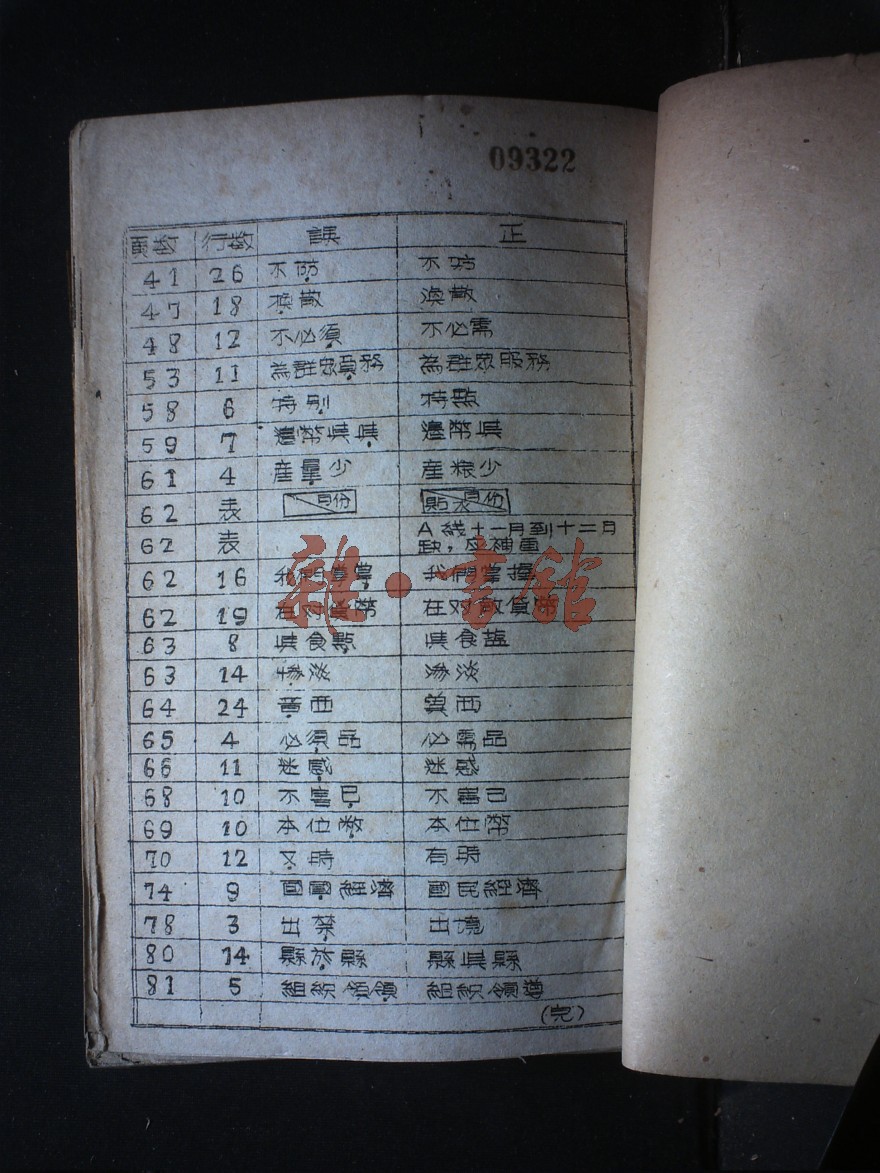 09322
頁数 行数 誤 正
41 26 不防 不妨
47 18 換散 渙散
48 12 不必須 不必需
53 11 為群眾負務 為群眾服務
58 6 特別 特點
59 7 邊幣與與 邊幣與
61 4 産量少 産粮少
62 表 月份 貼水 月份
62 表 A线十一月到十二月
缺,
62 16 我們 我們掌握
62 19 在对 貨幣 在对敌貨幣
63 8 與食點 與食盐
63 14 惨淡
64 24 西 西
65 4 必須品 必需品
66 11 迷感 迷惑
68 10 不害已
69 10 本位敝 本位幣
70 12 又時 有時
74 9 國圓經濟 國民經濟
78 3 出禁 出境
80 14 縣於縣 縣與縣
81 5 組織領領 組織領導
(完)
雜·書館